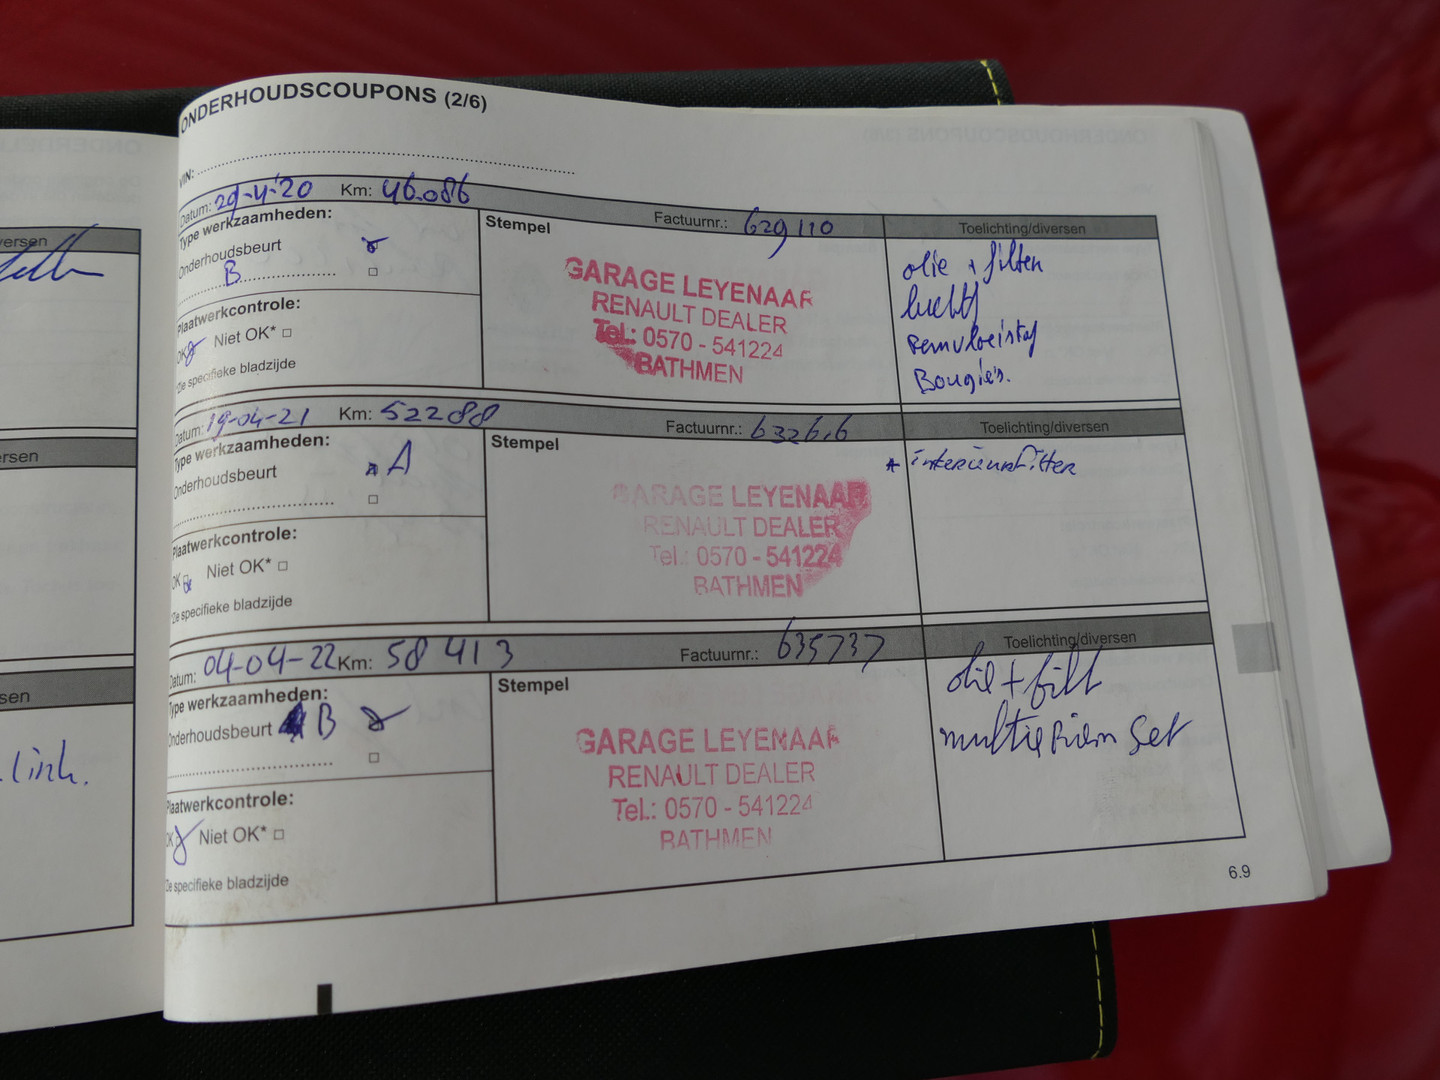 ONDERHOUDSCOUPONS (2/6)
VIN:
Datum: 29-4-'20 Km: 46.086
Type werkzaamheden:
Onderhoudsbeurt
B
Plaatwerkcontrole:
OK Niet OK*
*Zie specifieke bladzijde
Stempel
Factuurnr.: 629110
GARAGE LEYENAAR
RENAULT DEALER
Tel.: 0570 - 541224
BATHMEN
Toelichting/diversen
olie + filter
luchtf
remvloeistof
Bougies.
Datum: 19-04-21 Km: 52288
Type werkzaamheden:
Onderhoudsbeurt A
Plaatwerkcontrole:
OK Niet OK*
*Zie specifieke bladzijde
Stempel
Factuurnr.: 632616
GARAGE LEYENAAR
RENAULT DEALER
Tel.: 0570 - 541224
BATHMEN
Toelichting/diversen
* interieurfilter
Datum: 04-04-22 Km: 58413
Type werkzaamheden:
Onderhoudsbeurt B
Plaatwerkcontrole:
OK Niet OK*
*Zie specifieke bladzijde
Stempel
Factuurnr.: 635737
GARAGE LEYENAAR
RENAULT DEALER
Tel.: 0570 - 541224
BATHMEN
Toelichting/diversen
olie + filt
multi riem set
6.9